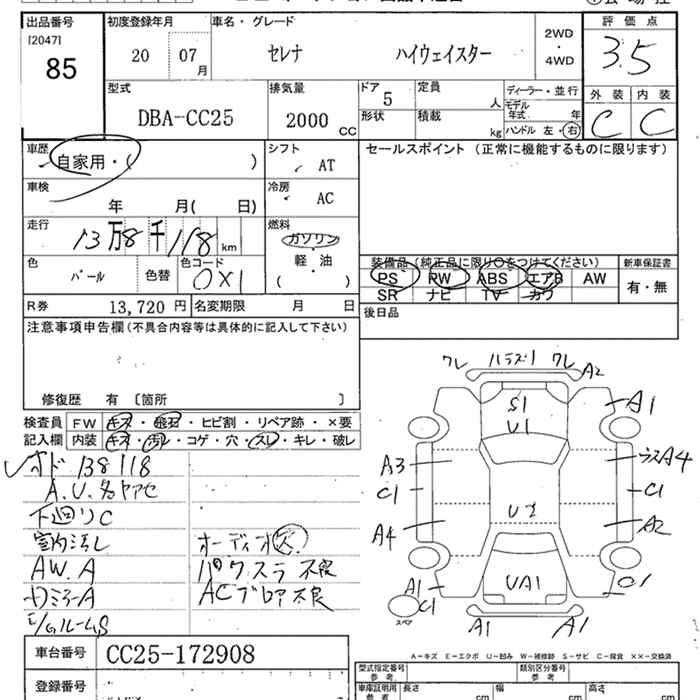 出品番号 初度登録年月 車名・グレード 2WD・4WD 評価点
[2047]
85 20 07月 セレナ ハイウェイスター 3.5
型式 排気量 ドア 定員 ディーラー・並行 外装 内装
DBA-CC25 2000cc 5 人 モデル年式 年 C C
形状 積載 kg ハンドル 左・右
車歴 シフト セールスポイント (正常に機能するものに限ります)
自家用・( ) AT
車検 冷房
年 月( 日) AC
走行 燃料
13万8千118km ガソリン
色 色替 色コード 軽・油
パール 0X1 ( )
装備品(純正品に限り〇をつけてください) 新車保証書
PS PW ABS エアB AW 有・無
SR ナビ TV カワ
R券 13,720円 名変期限 月 日 後日品
注意事項申告欄(不具合内容等は具体的に記入して下さい)
修復歴 有 [箇所 ]
検査員 FW キズ・飛石・ヒビ割・リペア跡・×要
記入欄 内装 キズ・汚レ・コゲ・穴・スレ・キレ・破レ
138118
下廻りC
AW.A
オーディオ欠
パワスラ不良
ワレ ワレ A2
S1
U1
A1
A3 A4
C1 C1
A4 A2
UA1
A1
C1
スペア
A1 A1
A-キズ E-エクボ U-凹み W-補修跡 S-サビ C-腐食 ××-交換済
車台番号 CC25-172908
登録番号
型式指定番号 参考 類別区分番号 参考
車庫証明用 参考 長さ cm 幅 cm 高さ cm